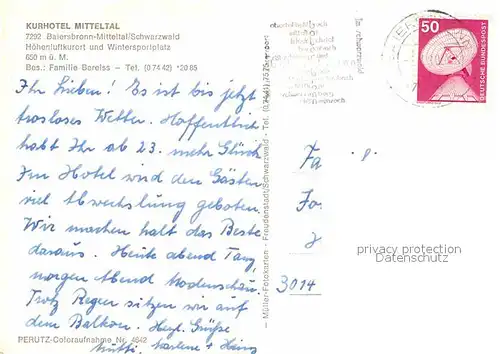 KURHOTEL MITTELTAL
7292 Baiersbronn-Mitteltal/Schwarzwald
Höhenluftkurort und Wintersportplatz
650 m ü. M.
Bes.: Familie Bareiss - Tel. (0 74 42) *20 85
Ihr Lieben! Es ist bis jetzt
trostloses Wetter. Hoffentlich
habt Ihr ab 23. mehr Glück
Im Hotel wird den Gästen
viel Abwechslung geboten.
Wir machen halt das Beste
daraus. Heute abend Tanz,
morgen Abend Modenschau.
Trotz Regen sitzen wir auf
dem Balkon. Herzl. Grüße
Mutti, Marlene + Heinz
PERUTZ-Coloraufnahme Nr. 4642
Müller-Fotokarten - Freudenstadt/Schwarzwald - Tel.
50
DEUTSCHE BUNDESPOST
Fa
p.
3014
privacy protection